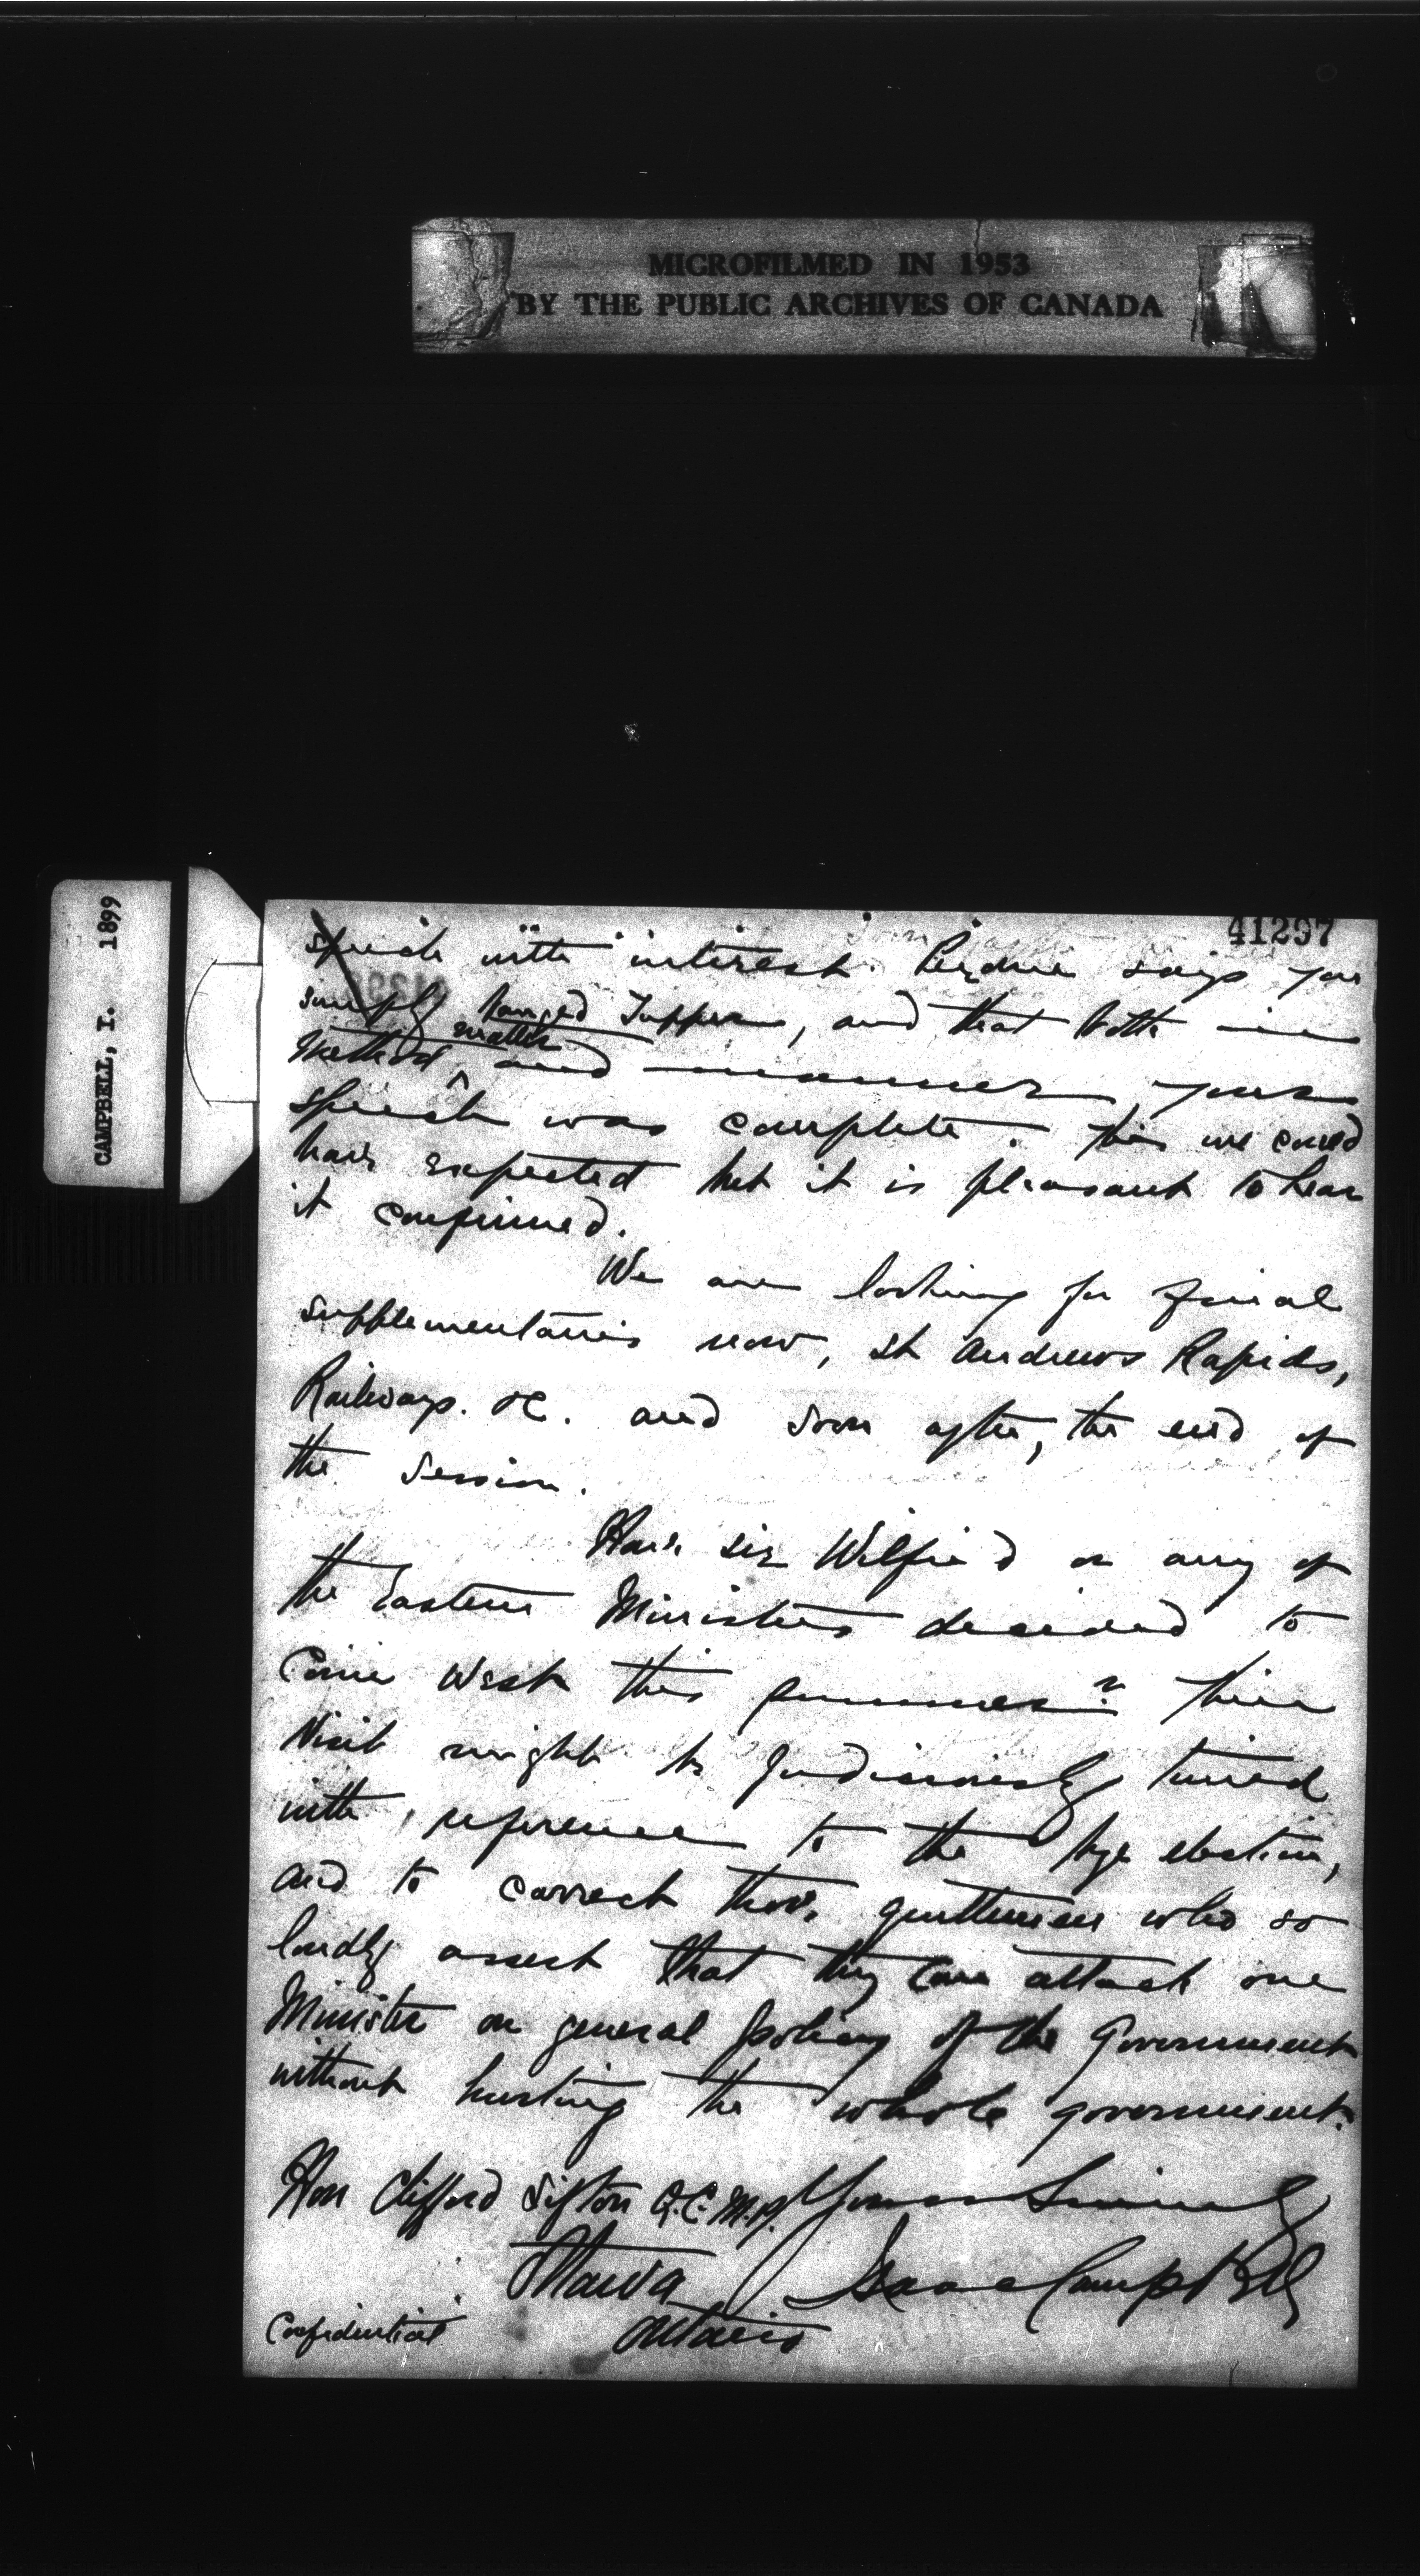 MICROFILMED IN 1953
BY THE PUBLIC ARCHIVES OF CANADA
CAMPBELL, I. 1899
41297
speech with interest. Perdue says you
simply banged Tupper, and that both in
method, matter and manner your
speech was complete. This we could
have expected but it is pleasant to hear
it confirmed.
We are looking for final
supplementaries now, St Andrews Rapids,
Railways. &c. and soon after, the end of
the session.
Have Sir Wilfrid or any of
the Eastern Ministers decided to
come West this summer? Their
visit might be judiciously timed
with reference to the bye election,
and to correct those gentlemen who so
loudly assert that they can attack one
Minister on general policy of the Government
without hurting the whole government.
Yours Sincerely
Isaac Campbell
Hon Clifford Sifton Q.C. M.P.
Ottawa
Ontario
Confidential